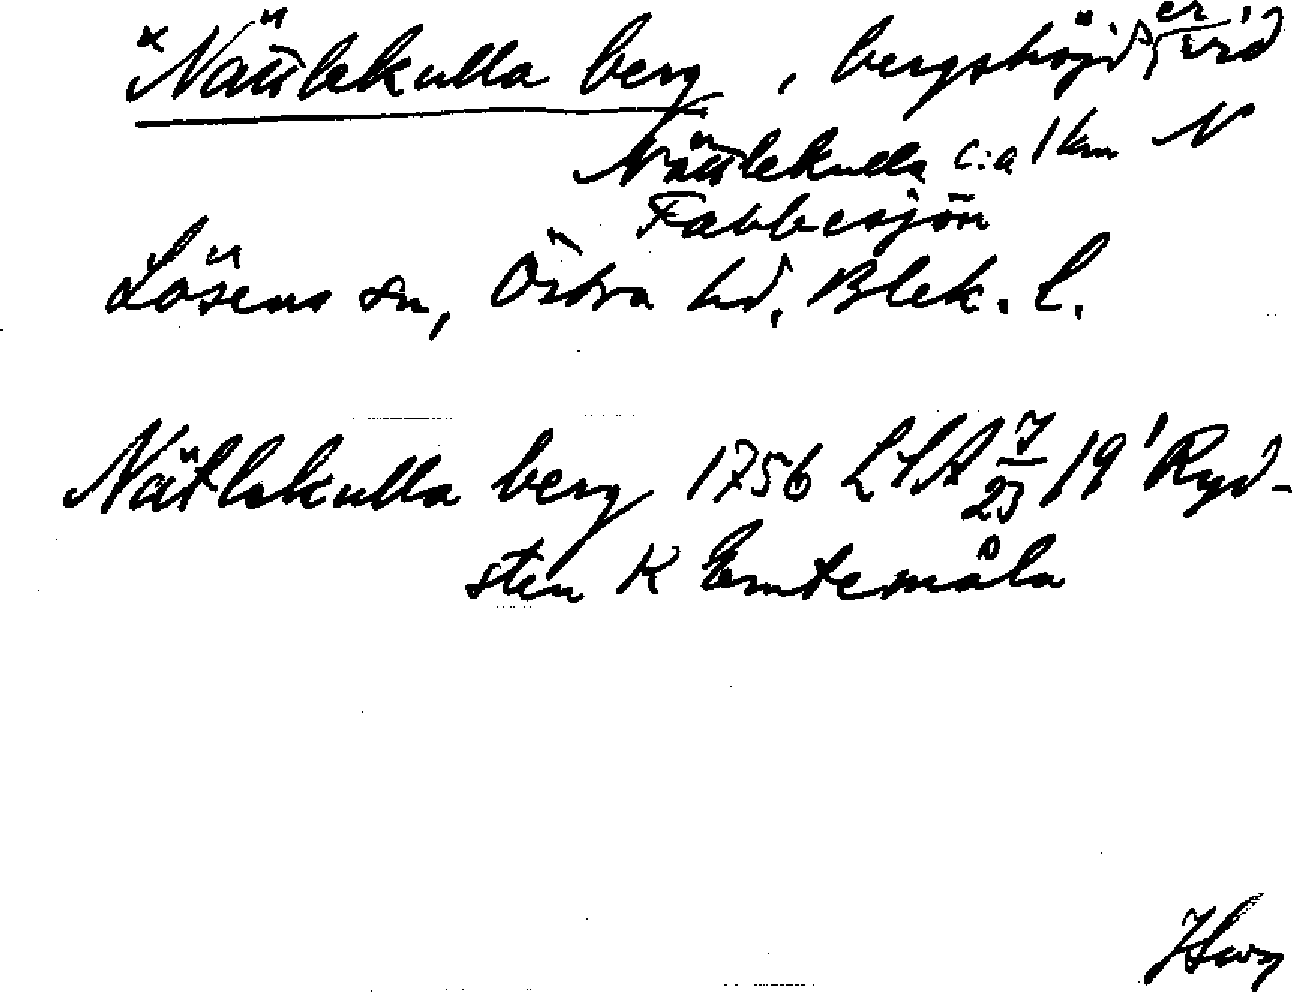 *Nättlekulla berg, bergshöjder vid
Nättlekulla c:a 1 km N
Fabbesjön
Lösens sn, Östra hd, Blek. l.
Nätlekulla berg 1756 LSA 7/23 19 'Ryd-
sten K Emtemåla